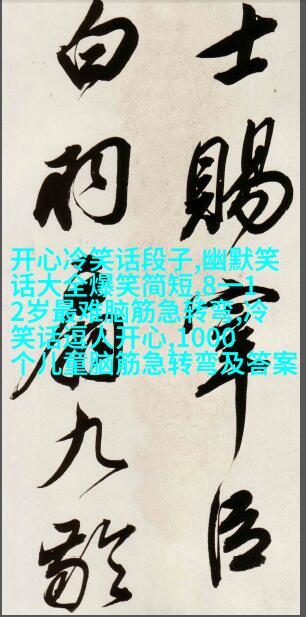 士賜宰臣
白羽扇九齡
开心冷笑话段子,幽默笑
话大全爆笑简短,8一1
2岁最难脑筋急转弯,冷
笑话逗人开心,1000
个儿童脑筋急转弯及答案